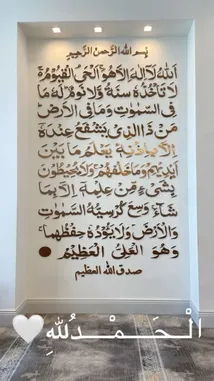 بِسْمِ اللهِ الرَّحْمٰنِ الرَّحِيْمِ
اَللهُ لَآ اِلٰهَ اِلَّا هُوَ اَلْحَيُّ الْقَيُّوْمُ ەۚ
لَا تَأْخُذُهٗ سِنَةٌ وَّلَا نَوْمٌ لَهٗ مَا
فِى السَّمٰوٰتِ وَمَا فِى الْاَرْضِ
مَنْ ذَا الَّذِىْ يَشْفَعُ عِنْدَهٗٓ
اِلَّا بِاِذْنِهٖ يَعْلَمُ مَا بَيْنَ
اَيْدِيْهِمْ وَمَا خَلْفَهُمْ وَلَا يُحِيْطُوْنَ
بِشَىْءٍ مِّنْ عِلْمِهٖٓ اِلَّا بِمَا
شَآءَ وَسِعَ كُرْسِيُّهُ السَّمٰوٰتِ
وَالْاَرْضَ وَلَا يَـُٔوْدُهٗ حِفْظُهُمَا
وَهُوَ الْعَلِىُّ الْعَظِيْمُ
صدق الله العظيم
الْـحَـمْـدُ لِلّٰهِ